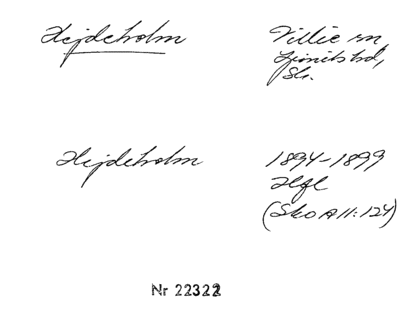 Hejdeholm
Villie sn,
Ljunits hd,
Sk.
Hejdeholm
1894-1899
Hfl
(Sko A II:124)
Nr 22322